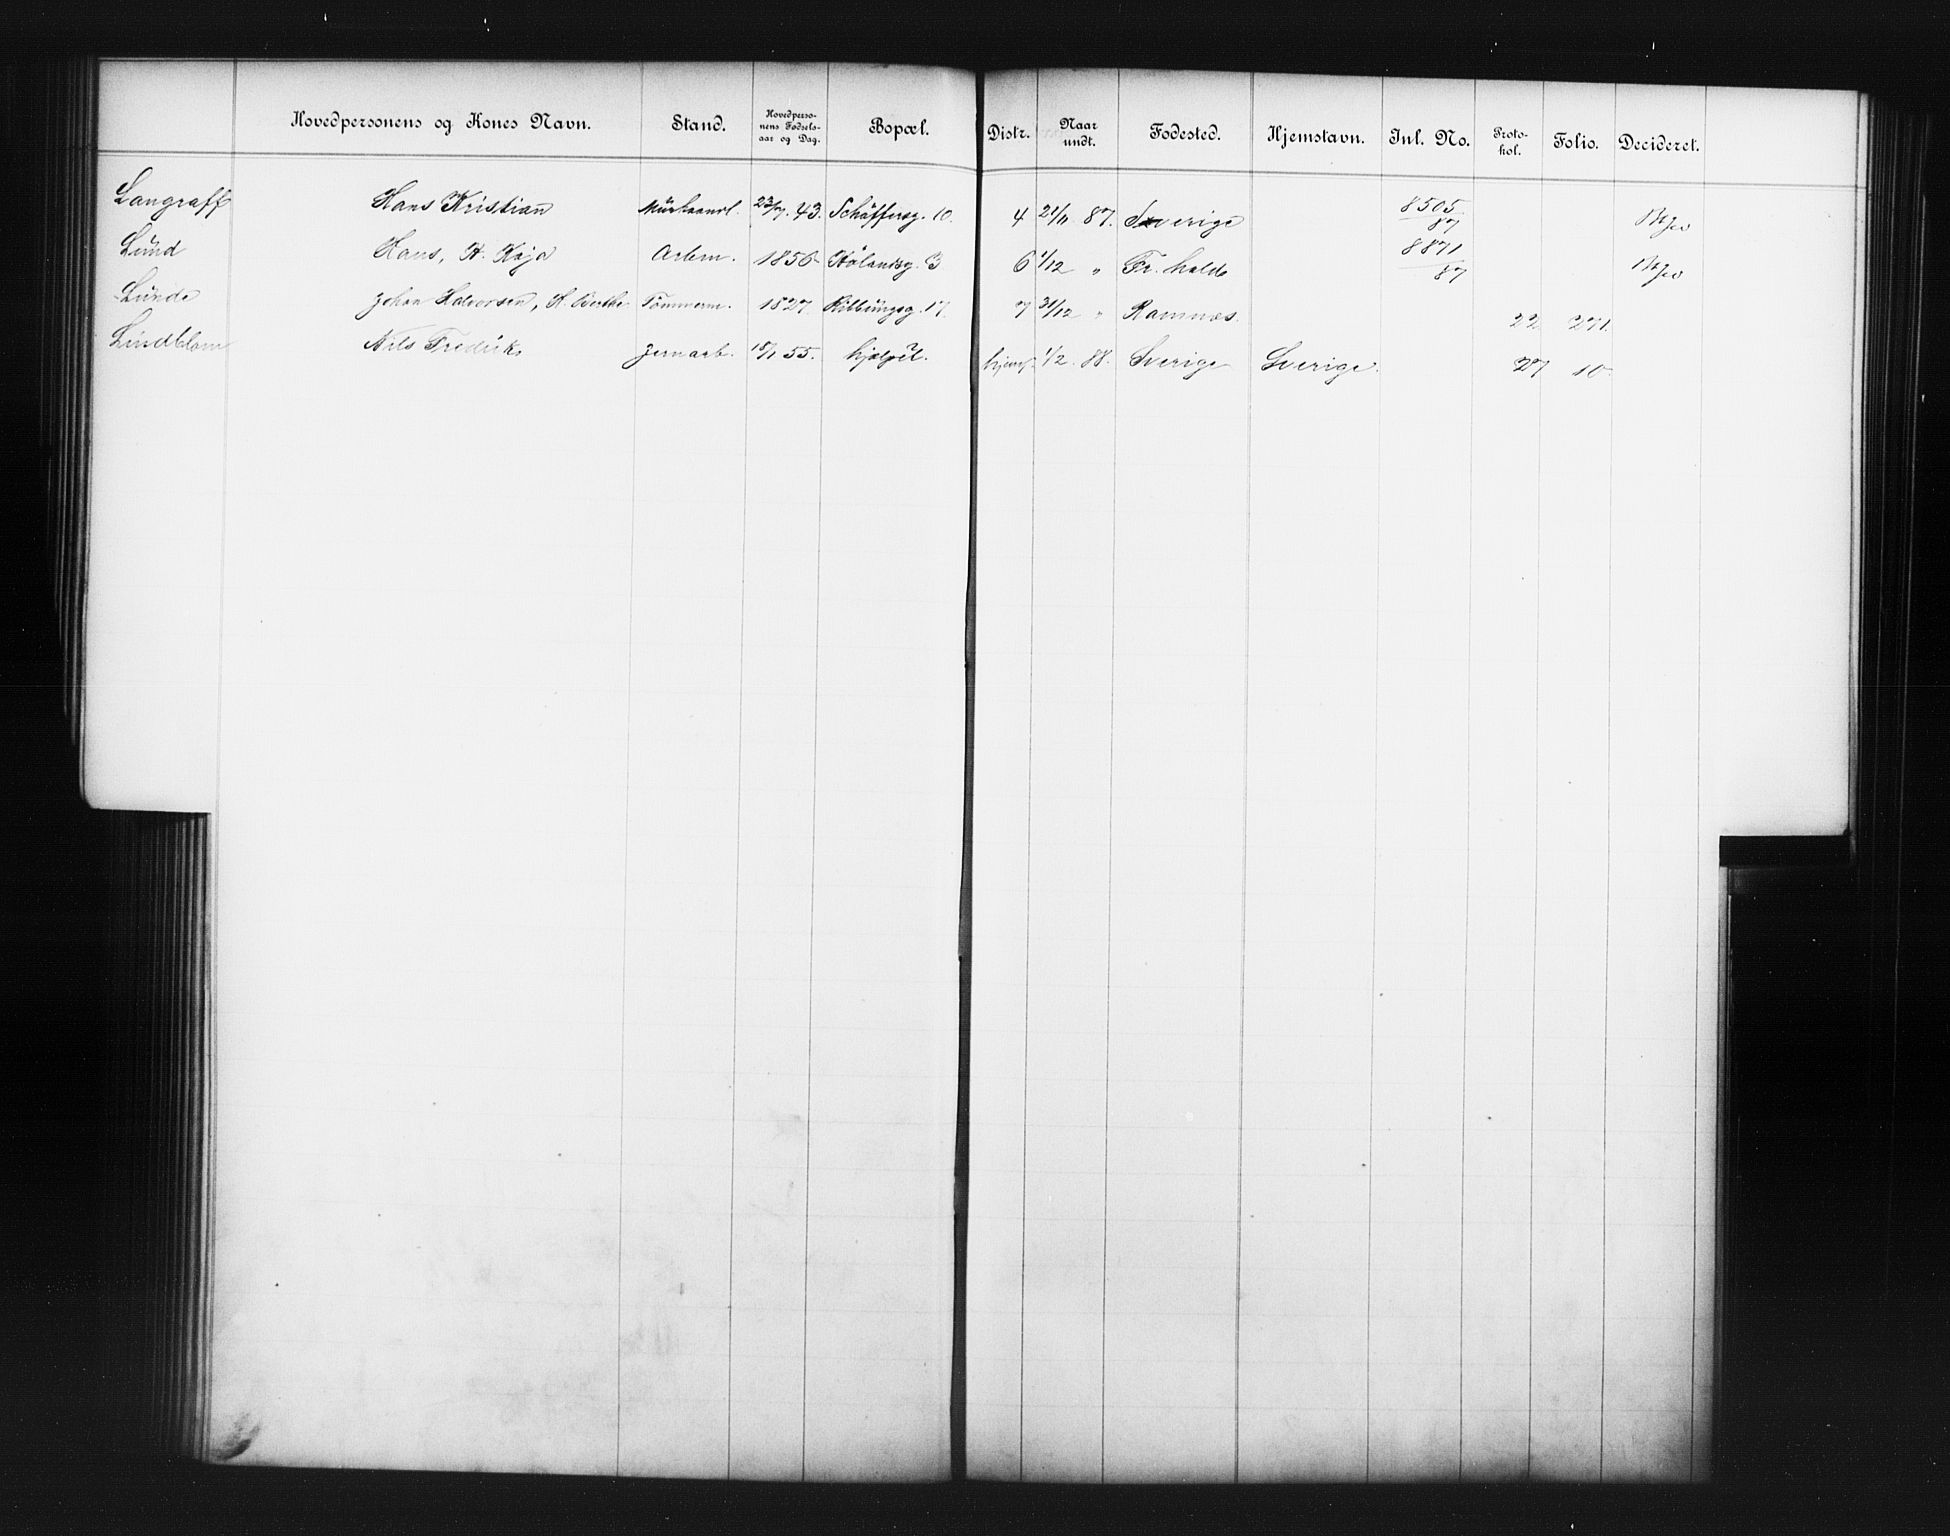 Hovedpersonens og Kones Navn. Stand. Hovedperso-nens Fødsels-aar og Dag. Bopæl. Distr. Naar undt. Fødested. Hjemstavn. Inl. No. Proto-kol. Folio. Decideret.
Langraff Hans Kristian 23/7. 43. Schäffersg. 10. 4 21/11 87. Sverige 8505/87
Lund Hans, H. Kaja Arbm. 1856 Hølandsg. 3 6 1/12 " Fr.hald 8871/87
Lunde Johan Halvorsen, H. Berthe Tømmerm. 1827. Ribbungsg. 17. 7 31/12 " Ramnæs. 22 271
Lindblom Nils Fredrik Jernarb. 18/1 55. 1/2 88. Sverige Sverige. 27 10.